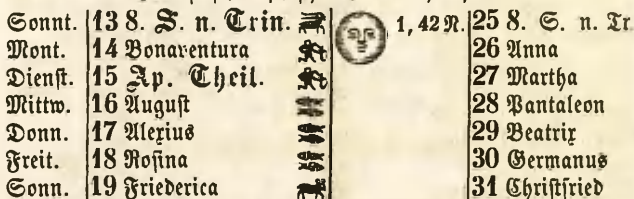 Sonnt. 13 8. S. n. Trin. 1, 42 N. 25 8. S. n. Tr
Mont. 14 Bonaventura 26 Anna
Dienst. 15 Ap. Theil. 27 Martha
Mittw. 16 August 28 Pantaleon
Donn. 17 Alexius 29 Beatrix
Freit. 18 Rosina 30 Germanus
Sonn. 19 Friederica 31 Christfried